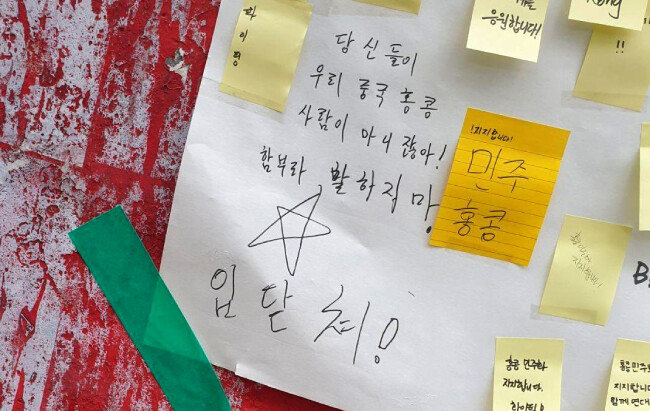 화
이
팅
응원합니다!
!!
당신들이
우리 중국 홍콩
사람이 아니잖아!
함부라 활하직마
입 닫 쳐!
지지합니다!
민주
홍콩
홍콩 민주화
지지합니다.
화이팅!
홍콩 민주
지지합니다
함께 연대